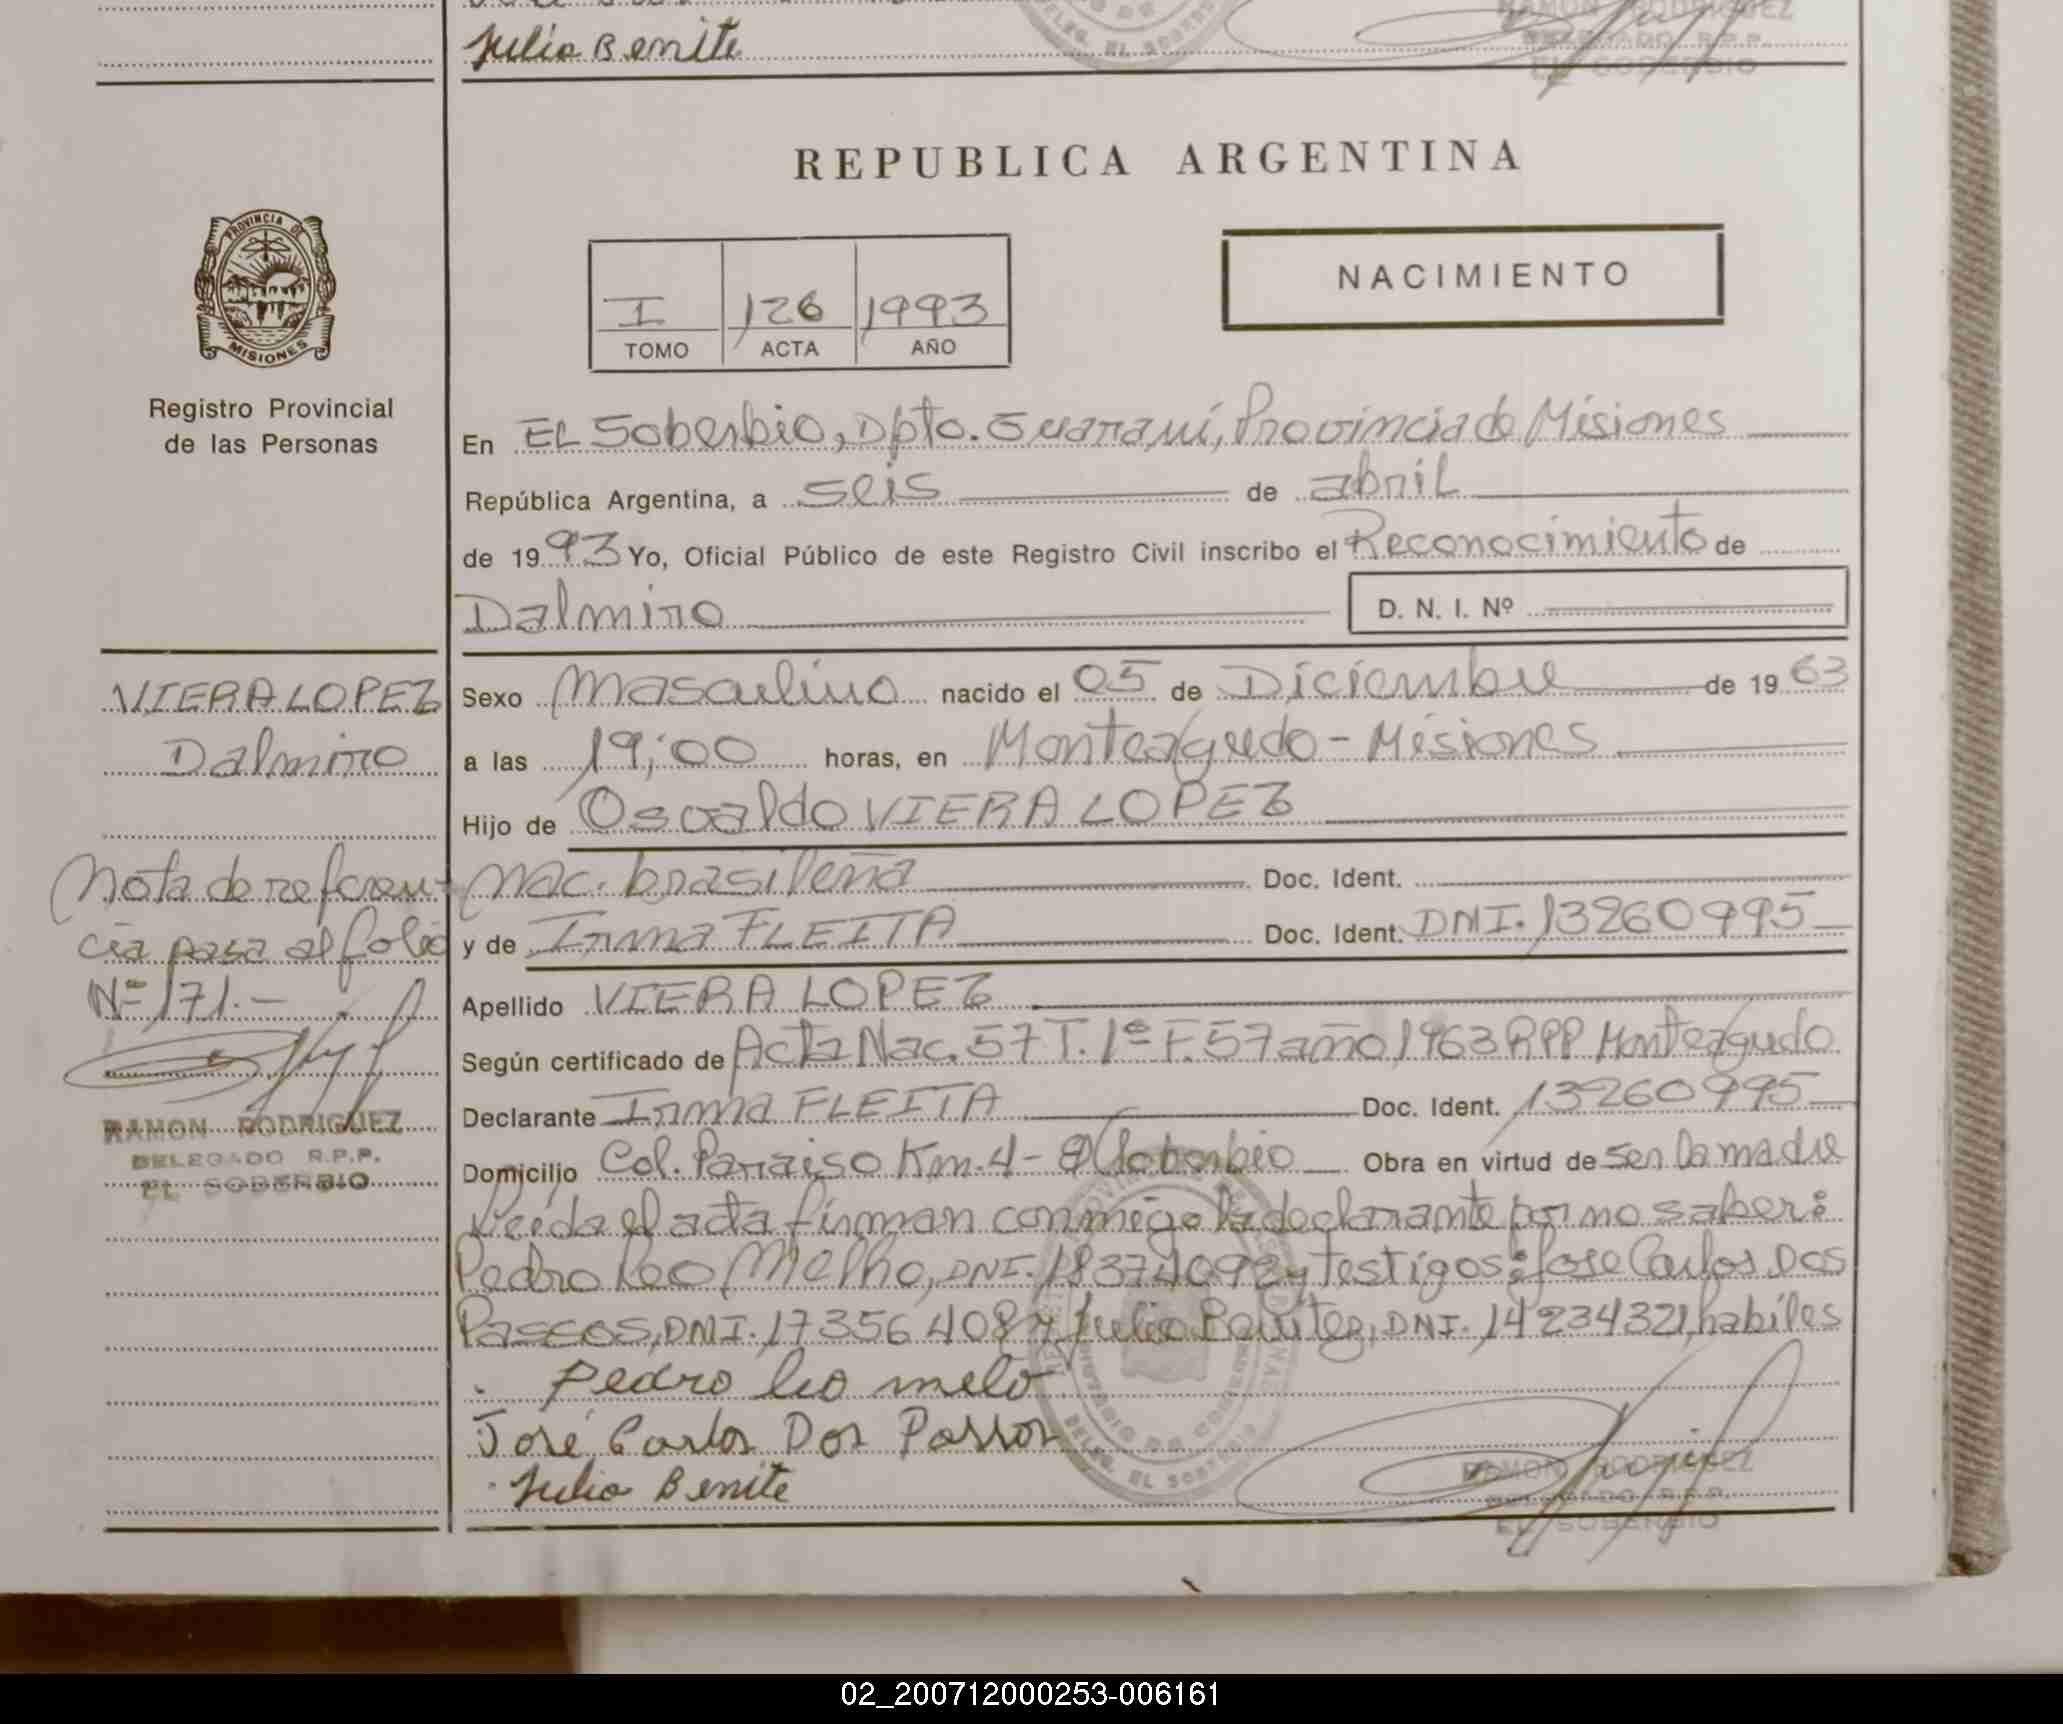 Julio Benite
RAMON RODRIGUEZ
DELEGADO R.P.P.
EL SOBERBIO
REPUBLICA ARGENTINA
PROVINCIA DE
MISIONES
Registro Provincial
de las Personas
I 126 1993
TOMO ACTA AÑO
NACIMIENTO
En EL Soberbio, Dpto. Guaraní, Provincia de Misiones
República Argentina, a seis de abril
de 1993 Yo, Oficial Público de este Registro Civil inscribo el Reconocimiento de
Dalmiro D. N. I. Nº
VIERA LOPEZ
Dalmiro
Nota de referen-
cia pasa al folio
Nº 171.-
RAMON RODRIGUEZ
DELEGADO R.P.P.
EL SOBERBIO
Sexo Masculino nacido el 05 de Diciembre de 1963
a las 19:00 horas, en Monteagudo - Misiones
Hijo de Osvaldo VIERA LOPEZ
Nac. brasileña Doc. Ident.
y de Irma FLEITA Doc. Ident. DNI. 13260995
Apellido VIERA LOPEZ
Según certificado de Acta Nac. 57 T. 1º F. 57 año 1963 RPP Monteagudo
Declarante Irma FLEITA Doc. Ident. 13260995
Domicilio Col. Paraiso Km. 4 - El Soberbio Obra en virtud de ser la madre
Leída el acta firman conmigo la declarante por no saber:
Pedro Leo Melho, DNI. 18374092 y Testigos: Jose Carlos Dos
Pascos, DNI. 17356408 y Julio Benitez, DNI. 14234321, habiles
Pedro leo melo
José Carlos Dos Passos
Julio Benite
DELEG. EL SOBERBIO
RAMON RODRIGUEZ
DELEGADO R.P.P.
EL SOBERBIO
02_200712000253-006161